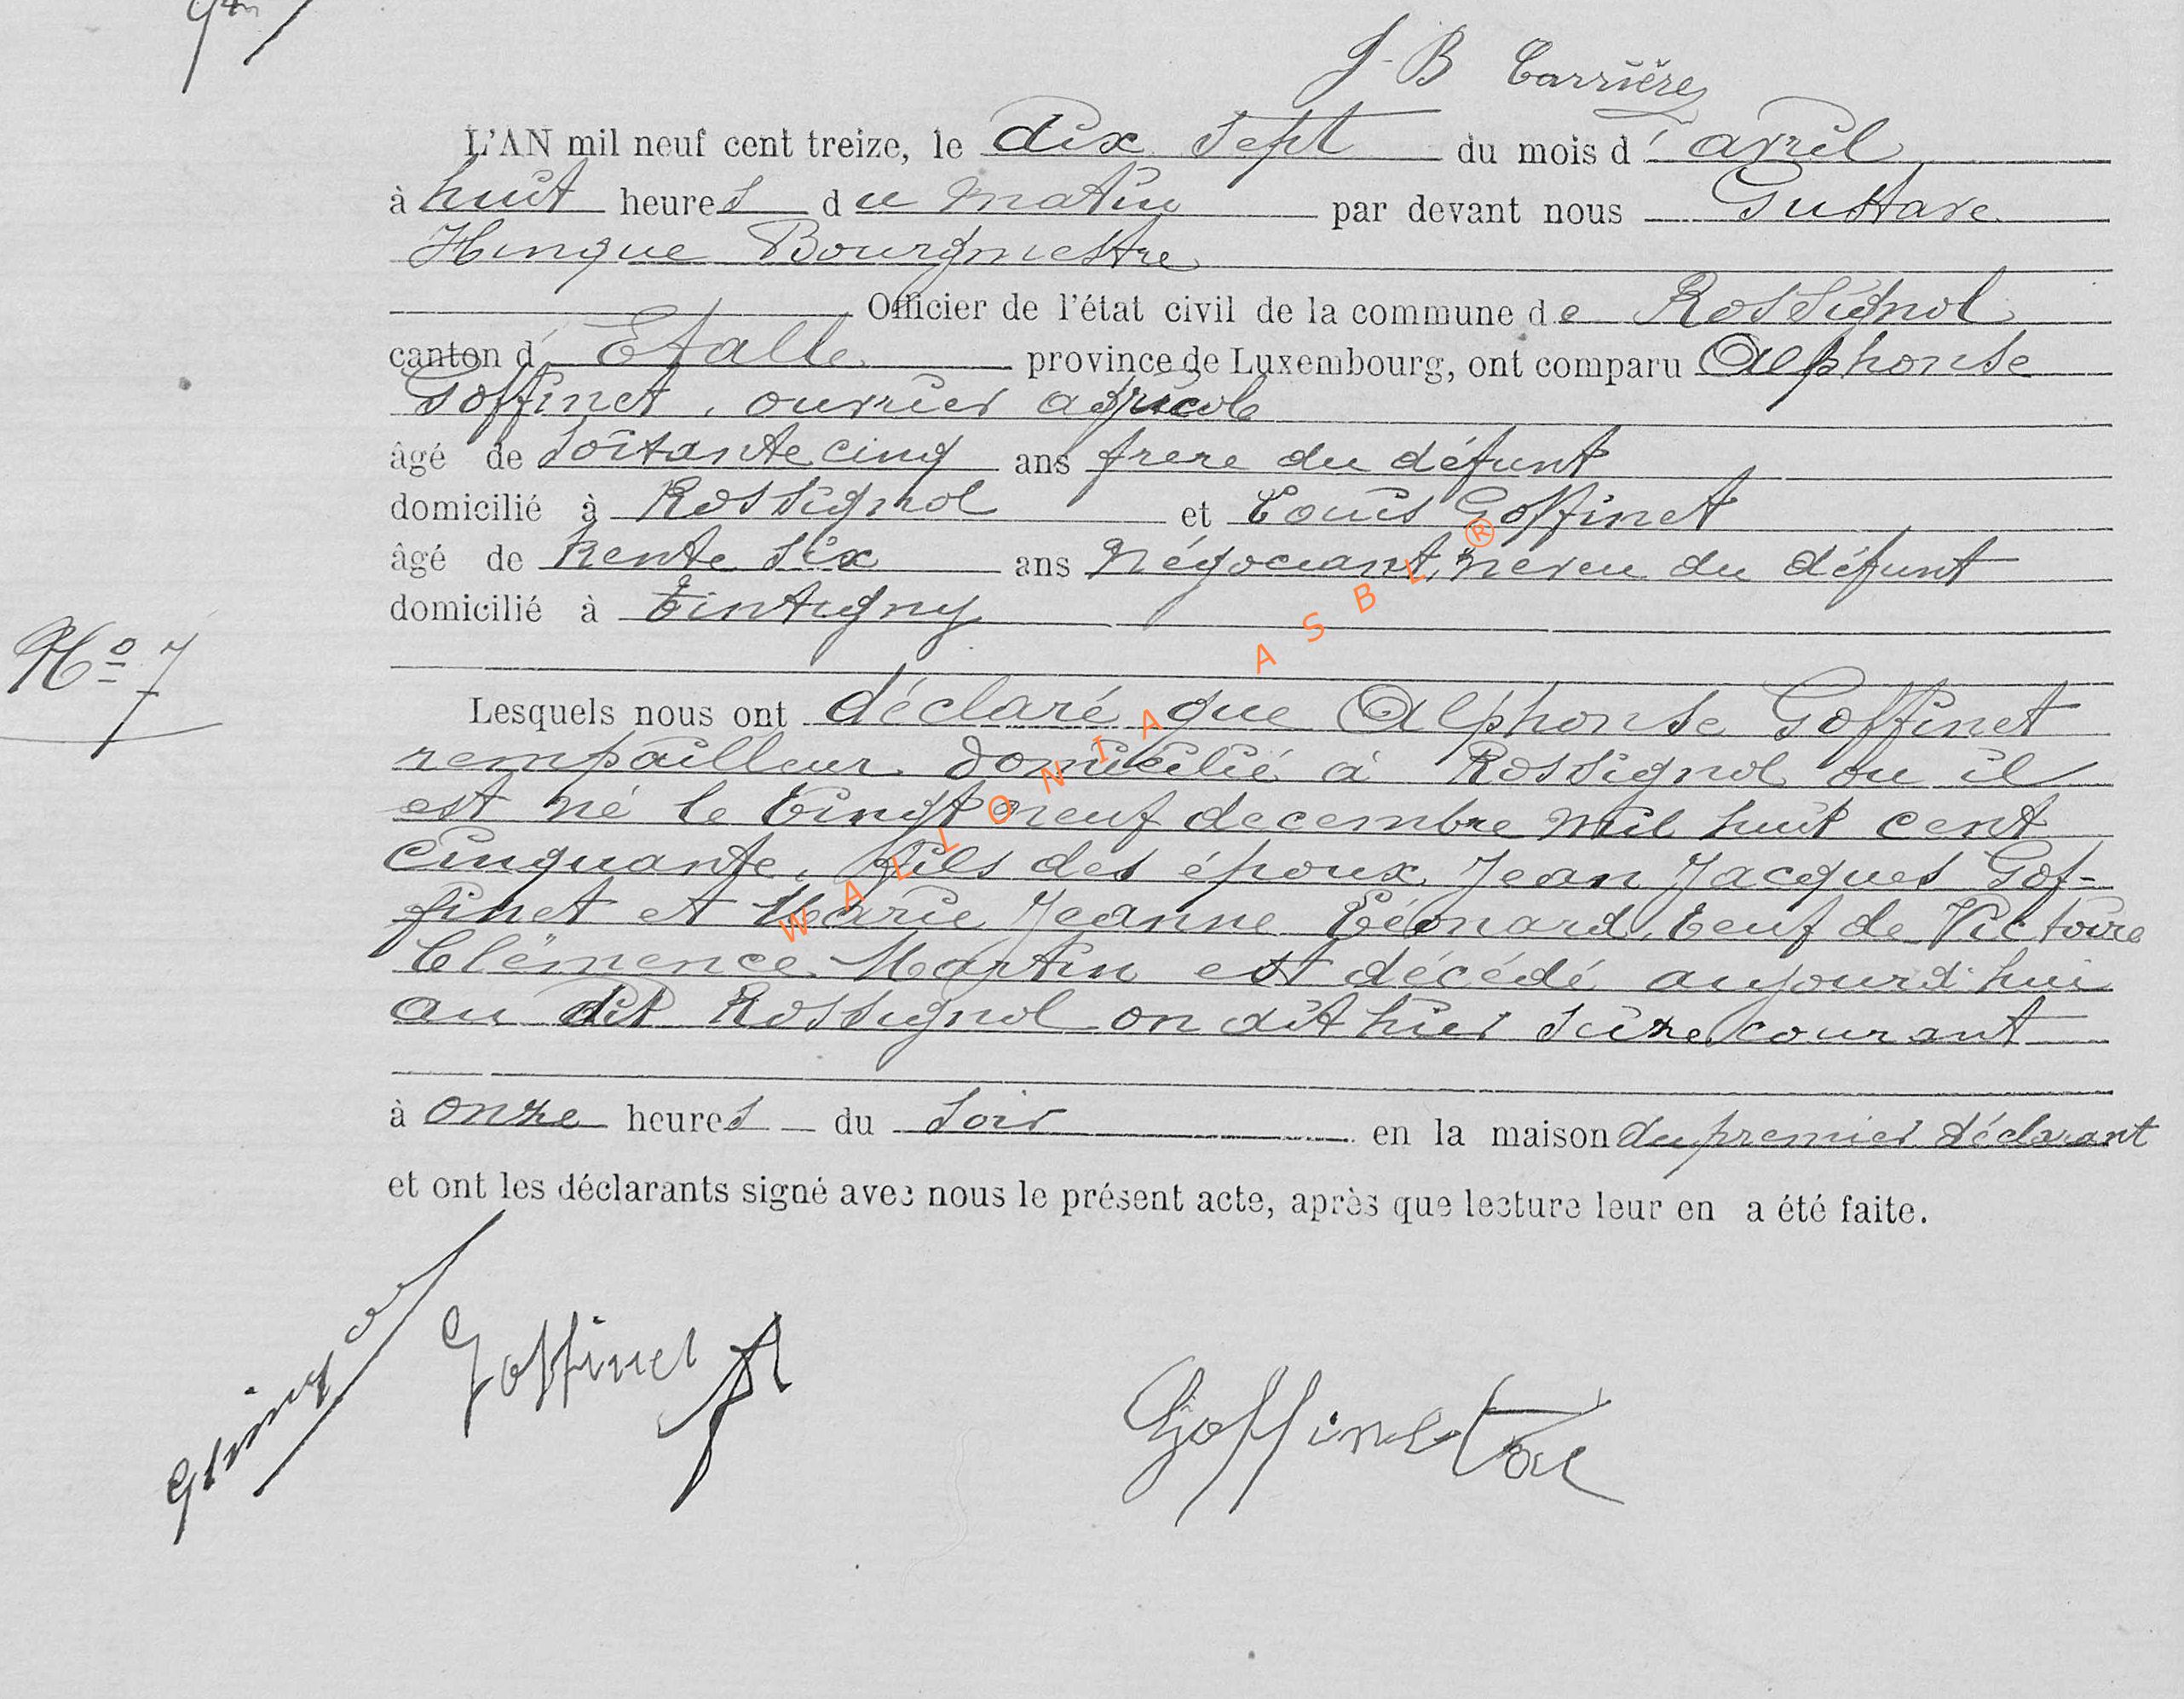 J-B Carrière
L'AN mil neuf cent treize, le dix sept du mois d'avril
à huit heures du matin par devant nous Gustave
Hinque Bourgmestre
Officier de l'état civil de la commune de Rossignol
canton d'Etalle province de Luxembourg, ont comparu Alphonse
Goffinet, ouvrier agricole
âgé de soixante cinq ans frere du défunt
domicilié à Rossignol et Louis Goffinet
âgé de trente six ans négociant, neveu du défunt
domicilié à Tintigny
No 7
Lesquels nous ont déclaré que Alphonse Goffinet
rempailleur domicilié à Rossignol ou il
est né le vingt neuf decembre mil huit cent
cinquante, fils des époux Jean Jacques Gof-
finet et Marie Jeanne Léonard, veuf de Victoire
Clémence Martin est décédé aujourd'hui
au dit Rossignol on dit hier seize courant
à onze heures du soir en la maison du premier déclarant
et ont les déclarants signé avec nous le présent acte, après que lecture leur en a été faite.
Goffinet A
Goffinet
WALLONIA ASBL ®